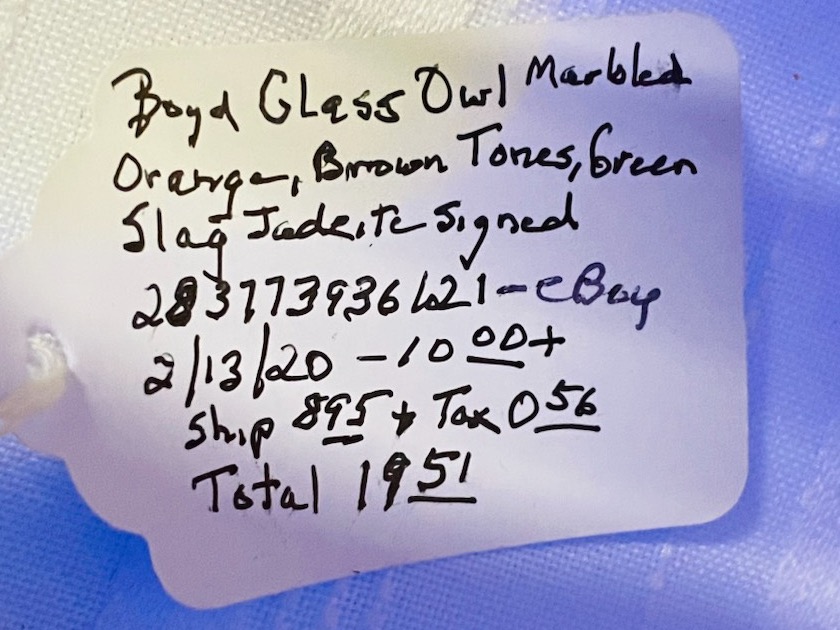 Boyd Glass Owl Marbled
Orange, Brown Tones, Green
Slag Jadeite Signed
283773936621 - eBay
2/13/20 - 10 00 +
Ship 8 95 + Tax 0 56
Total 19 51